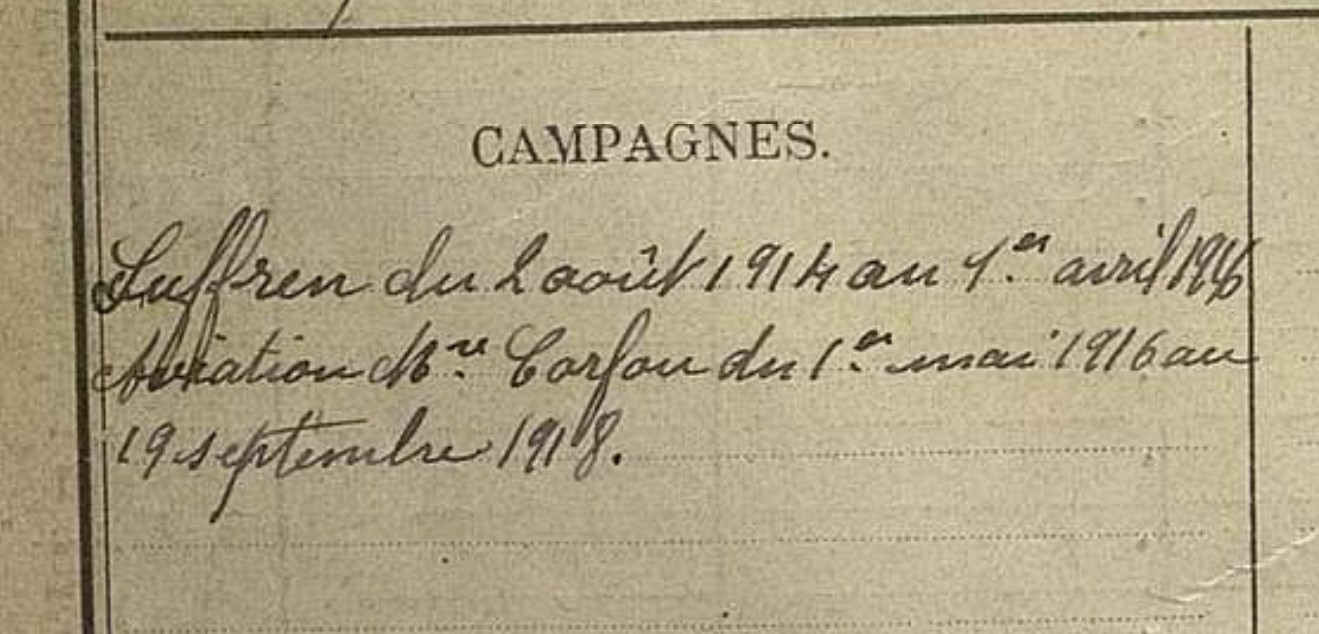 CAMPAGNES.
Suffren du 2 août 1914 au 1.er avril 1916
Aviation M.re Corfou du 1.er mai 1916 au
19 septembre 1918.